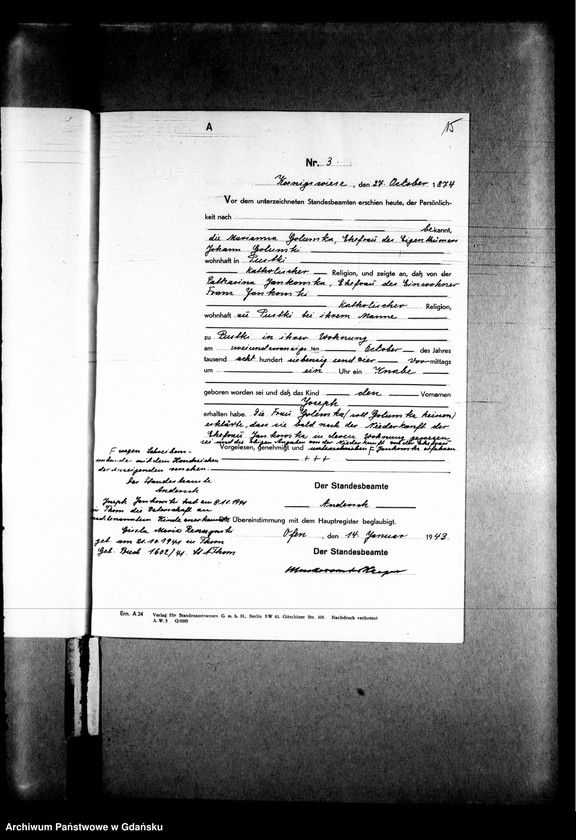 A
15
Nr. 3
Koenigswiese, den 27. October 1874
Vor dem unterzeichneten Standesbeamten erschien heute, der Persönlich-
keit nach
bekannt,
die Marianna Golumska, Ehefrau des Eigenthümers
Johann Golumski
wohnhaft in Pustki
katholischer Religion, und zeigte an, daß von der
Catharina Jankowska, Ehefrau des Einwohner
Franz Jankowski
katholischer Religion,
wohnhaft zu Pustki bei ihrem Manne
zu Pustki in ihrer Wohnung
am zweiundzwanzigsten October des Jahres
tausend acht hundert siebenzig und vier Vormittags
um ein Uhr ein Knabe
geboren worden sei und daß das Kind den Vornamen
Joseph
erhalten habe. Die Frau Golumska (soll Golumska heissen)
erklärte, dass sie bald nach der Niederkunft der
Ehefrau Jankowska in deren Wohnung gewesen
sei und die obigen Angaben von der Niederkunft von der Ehefrau
Vorgelesen, genehmigt und unterschrieben F Jankowska erfahren
F wegen Schreibens-
unkunde mit dem Handzeichen
der Anzeigenden versehen.
+++
Der Standesbeamte
Andersch
Der Standesbeamte
Andersch
Joseph Jankowski hat am 8.11.1941
in Thorn die Vaterschaft an
nachbenanntem Kinde anerkannt:
Gisela Maria
geb am 21.10.1941 in Thorn
Geb. Buch 1602/41. St.A Thorn
Übereinstimmung mit dem Hauptregister beglaubigt.
Ofen, den 14. Januar 1943
Der Standesbeamte
Ern. A 24 Verlag für Standesamtswesen G. m. b. H., Berlin SW 61, Gitschiner Str. 109. Nachdruck verboten!
A. W. 5
Archiwum Państwowe w Gdańsku